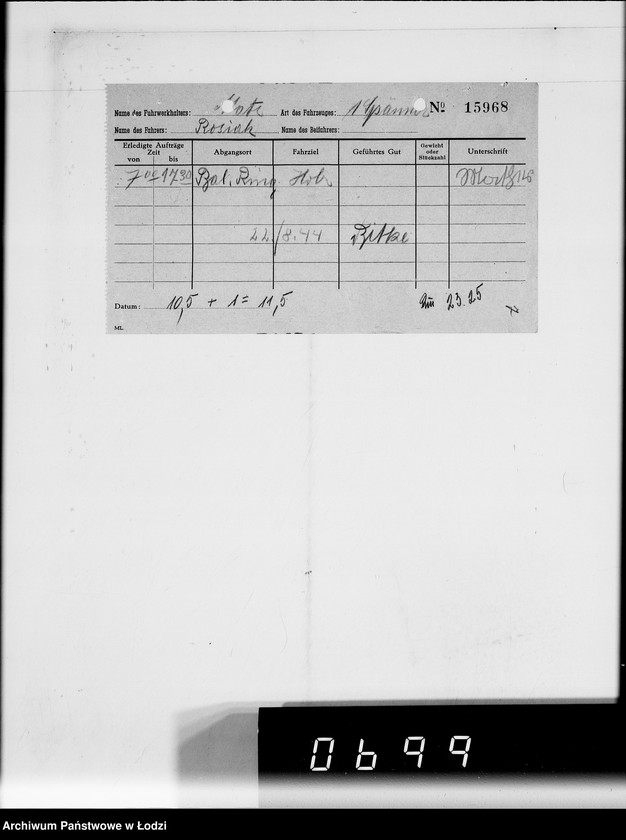 Name des Fuhrwerkhalters: Art des Fahrzeuges: 1 Spänner № 15968
Name des Fahrers: Rosiak Name des Beifahrers:
Erledigte Aufträge Zeit von bis Abgangsort Fahrziel Geführtes Gut Gewicht oder Stückzahl Unterschrift
7 00 17 30 Bal. Ring Holz
22/8.44
Datum: 10,5 + 1 = 11,5 23.25
ML.
0699
Archiwum Państwowe w Łodzi